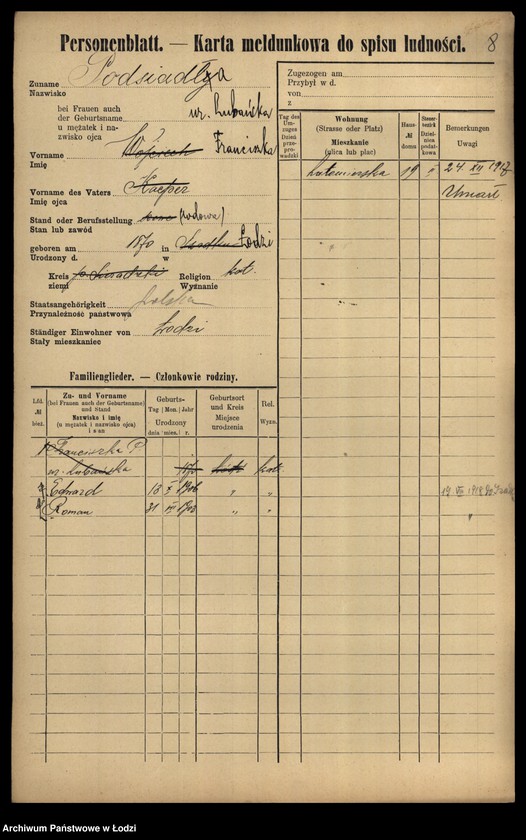 8
Personenblatt. — Karta meldunkowa do spisu ludności.
Zuname
Nazwisko
Podsiadła
bei Frauen auch
der Geburtsname
u mężatek i na-
zwisko ojca
ur. Lubańska
Vorname
Imię
Wojciech Franciszka
Vorname des Vaters
Imię ojca
Kacper
Stand oder Berufsstellung
Stan lub zawód
(wdowa)
geboren am
Urodzony d.
1870 in
w
Łodzi
Kreis
ziemi
p. Sieradzki
Religion
Wyznanie
kat.
Staatsangehörigkeit
Przynależność państwowa
polska
Ständiger Einwohner von
Stały mieszkaniec
Łodzi
Familienglieder. — Członkowie rodziny.
Lfd.
№
bież.
Zu- und Vorname
(bei Frauen auch der Geburtsname)
und Stand
Nazwisko i imię
(u mężatek i nazwisko ojca)
i stan
Geburts-
Tag | Mon. | Jahr
Urodzony
dnia | mies. | r.
Geburtsort
und Kreis
Miejsce
urodzenia
Rel.
Wyzn.
Franciszka P.
ur. Lubańska 1870 kat.
Edward 13 X 1906 " "
Roman 31 1908 " "
Zugezogen am
Przybył w d.
von
z
Tag des
Um-
zuges
Dzień
prze-
pro-
wadzki
Wohnung
(Strasse oder Platz)
Mieszkanie
(ulica lub plac)
Haus-
№
domu
Steuer-
bezirk
Dziel-
nica
podat-
kowa
Bemerkungen
Uwagi
Lutomierska 19 I 24. XII 1917
Umarł
19 VII 1918
"
Archiwum Państwowe w Łodzi